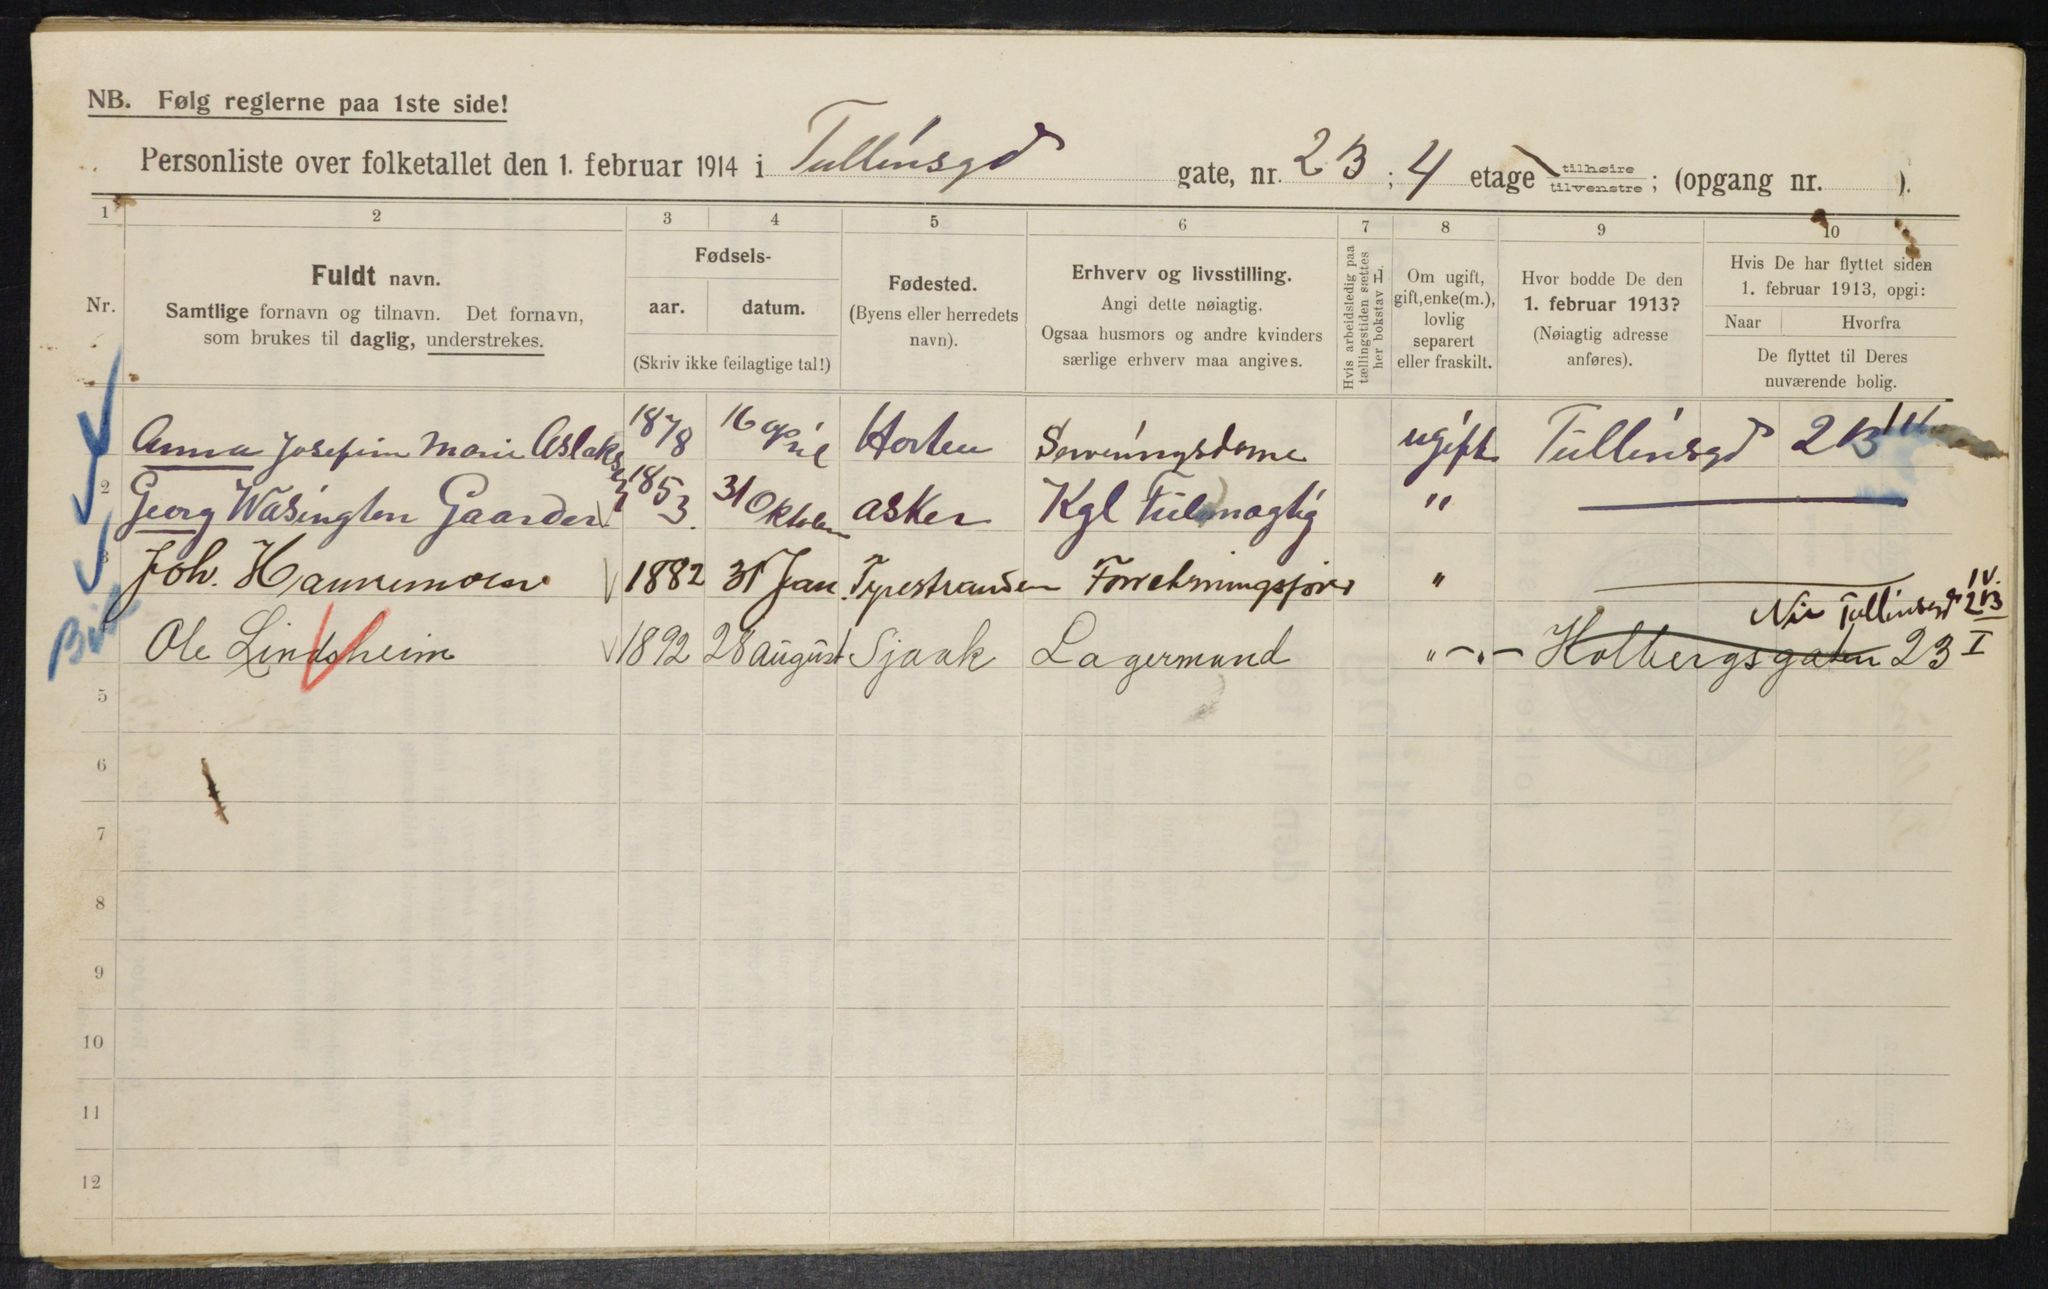 NB. Følg reglerne paa 1ste side!
Personliste over folketallet den 1. februar 1914 i Tullinsgd gate, nr. 2B; 4 etage tilhøire tilvenstre; (opgang nr. ).
1 2 3 4 5 6 7 8 9 10
Nr.
Fuldt navn.
Samtlige fornavn og tilnavn. Det fornavn,
som brukes til daglig, understrekes.
Fødsels-
aar. datum.
(Skriv ikke feilagtige tal!)
Fødested.
(Byens eller herredets
navn).
Erhverv og livsstilling.
Angi dette nøiagtig.
Ogsaa husmors og andre kvinders
særlige erhverv maa angives.
Hvis arbeidsledig paa
tællingstiden sættes
her bokstav L.
Om ugift,
gift, enke(m.),
lovlig
separert
eller fraskilt.
Hvor bodde De den
1. februar 1913?
(Nøiagtig adresse
anføres).
Hvis De har flyttet siden
1. februar 1913, opgi:
Naar Hvorfra
De flyttet til Deres
nuværende bolig.
Anna Josefine Marie Aslaksen 1878 16 april Horten Serveringsdame ugift Tullinsgd 2B
2 Georg Wasington Gaarder 1853 31 Oktober Asker Kgl Fulmægtig "
3 Joh. Hannemoen 1882 31 Jan. Tyrestranden Forretningsfører "
Nei Tullinsgd 2B IV.
Ole Lindsheim 1892 28 august Sjaak Lagermand " - " - Holbergsgaten 23 I
5
6
7
8
9
10
11
12